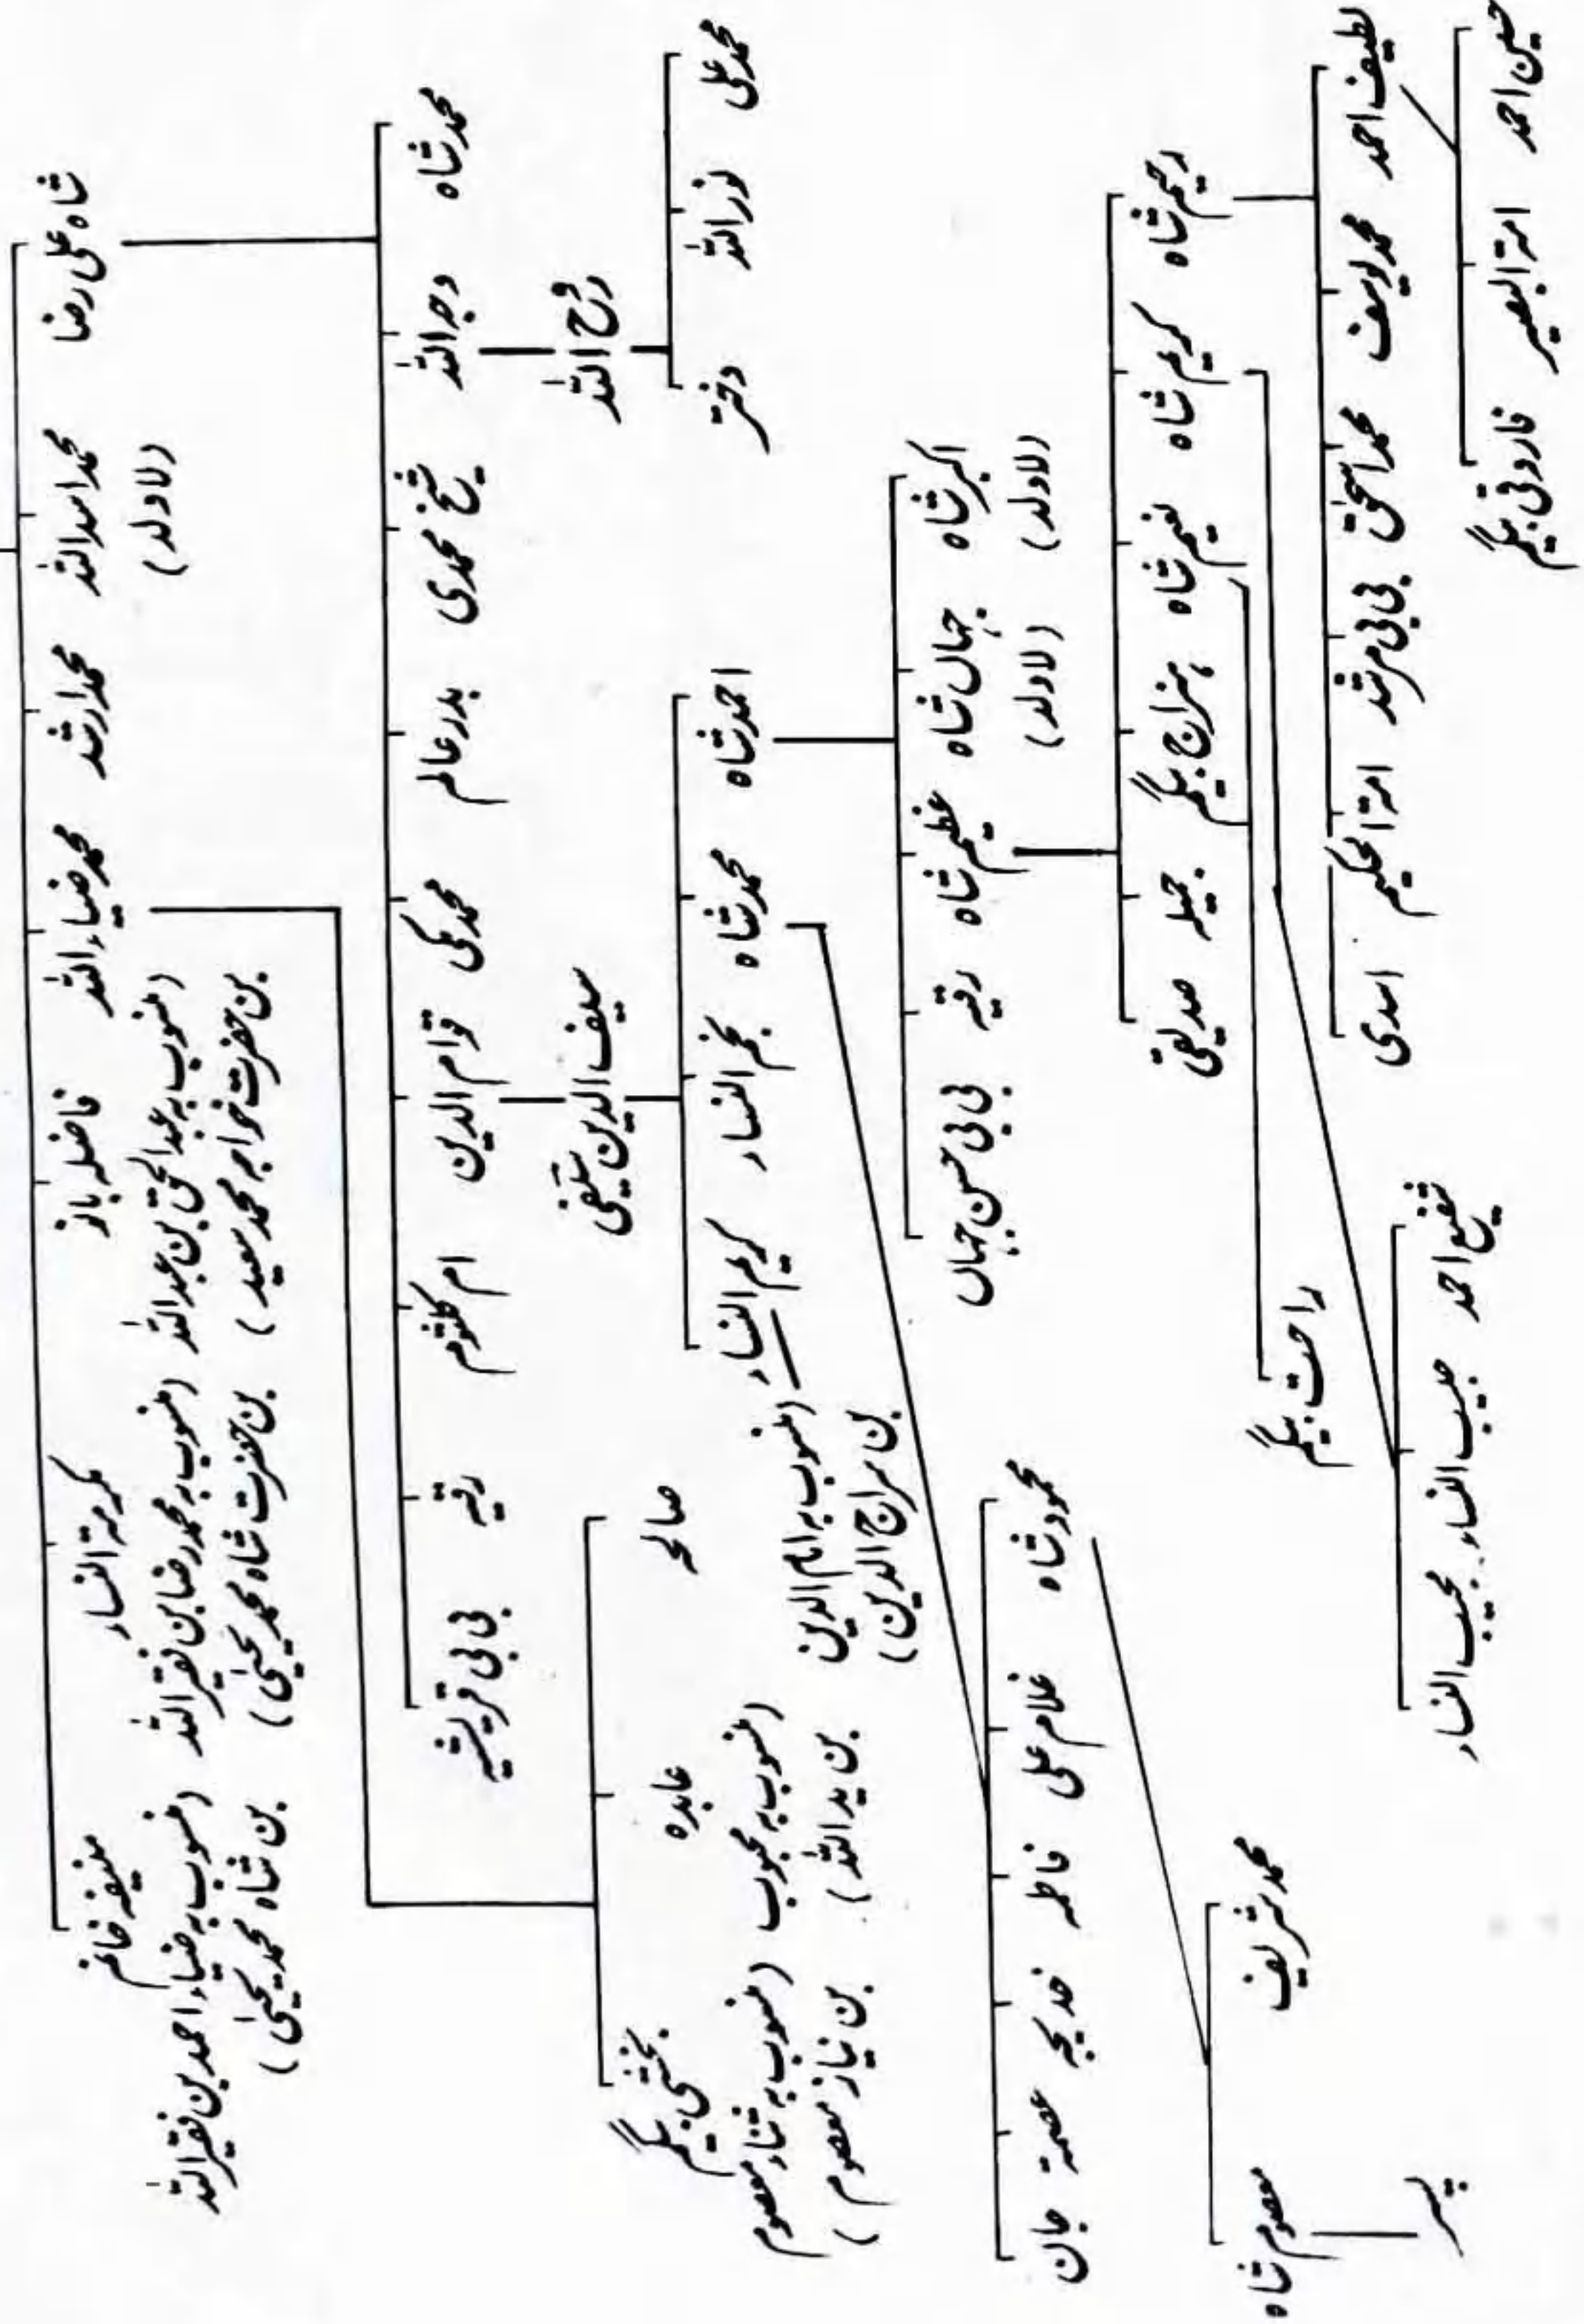 شاہ علی رضا
محمد اسد اللہ
(لاولد)
محمد ارشد
محمد ضیاء اللہ
فاضلہ بانو
(منسوب بہ عبدالحق بن عبداللہ
بن حضرت خواجہ محمد سعید)
مکرمۃ النساء
(منسوب بہ محمد رضا بن فقیر اللہ
بن حضرت شاہ محمد یحییٰ)
منیفہ خانم
(منسوب بہ ضیاء احمد بن فقیر اللہ
بن شاہ محمد یحییٰ)
محمد شاہ وجہ اللہ شیخ محمدی بدر عالم محمد مکی قوام الدین ام کلثوم رقیہ بی بی قریشیہ
روح اللہ
محمد علی نور اللہ دختر
سیف الدین سیفی
احمد شاہ محمد شاہ نجم النساء کریم النساء
(منسوب بہ امام الدین
بن سراج الدین)
صالحہ عابدہ بخشی بیگم
(منسوب بہ محبوب
بن ید اللہ)
(منسوب بہ ثناء معصوم
بن نیاز معصوم)
اکبر شاہ جہاں شاہ عظیم شاہ رقیہ بی بی حسن جہاں
(لاولد) (لاولد)
محمود شاہ غلام علی فاطمہ خدیجہ عصمۃ جان
رحیم شاہ کریم شاہ نعیم شاہ ہنراج بیگم جمیلہ صدیقی
راحت بیگم
محمد شریف معصوم شاہ
پسر
لطیف احمد محمد یوسف محمد اسحٰق بی بی مرشد امۃ الحکیم اسدی
شفیع احمد حبیب النساء مجیب النساء
حسین احمد امۃ البصیر فاروقی بیگم